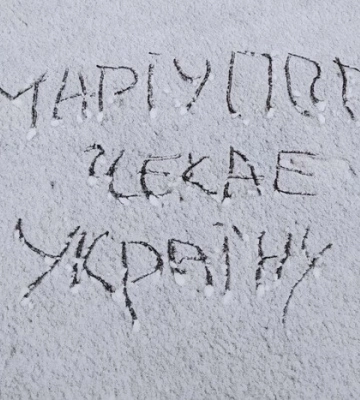 МАРІУПОЛ
ЧЕКАЄ
УКРАЇНУ